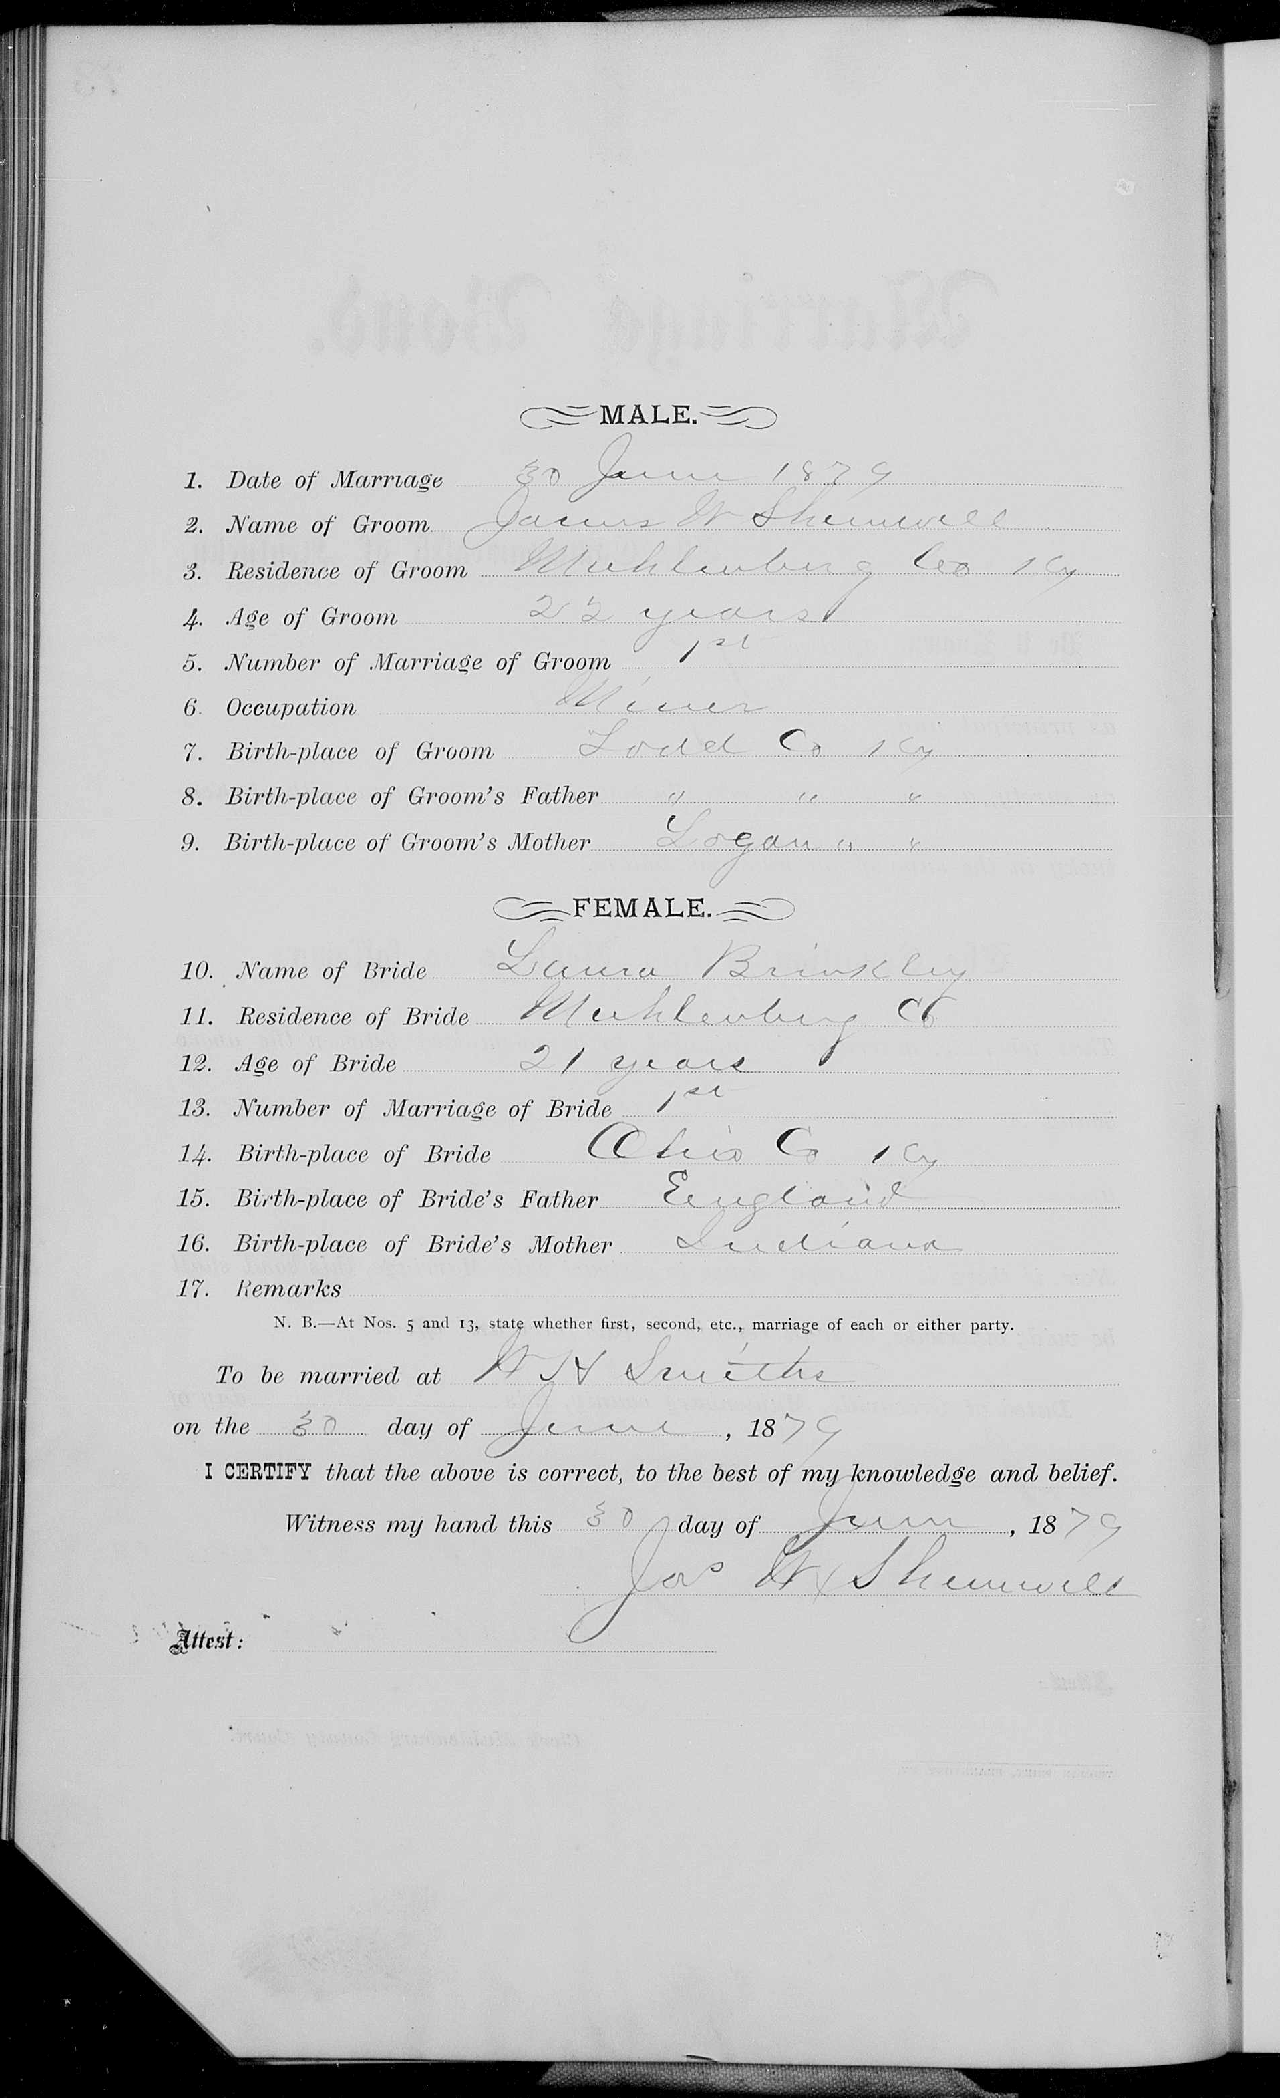 MALE.
1. Date of Marriage 30 June 1879
2. Name of Groom James W Shemwell
3. Residence of Groom Muhlenberg Co Ky
4. Age of Groom 22 years
5. Number of Marriage of Groom 1st
6. Occupation Miner
7. Birth-place of Groom Todd Co Ky
8. Birth-place of Groom's Father " " "
9. Birth-place of Groom's Mother Logan " "
FEMALE.
10. Name of Bride Laura Brinkley
11. Residence of Bride Muhlenberg Co
12. Age of Bride 21 years
13. Number of Marriage of Bride 1st
14. Birth-place of Bride Ohio Co Ky
15. Birth-place of Bride's Father England
16. Birth-place of Bride's Mother Indiana
17. Remarks
N. B.—At Nos. 5 and 13, state whether first, second, etc., marriage of each or either party.
To be married at W H Smiths
on the 30 day of June, 1879
I CERTIFY that the above is correct, to the best of my knowledge and belief.
Witness my hand this 30 day of June, 1879
Jas W x Shemwell
Attest: